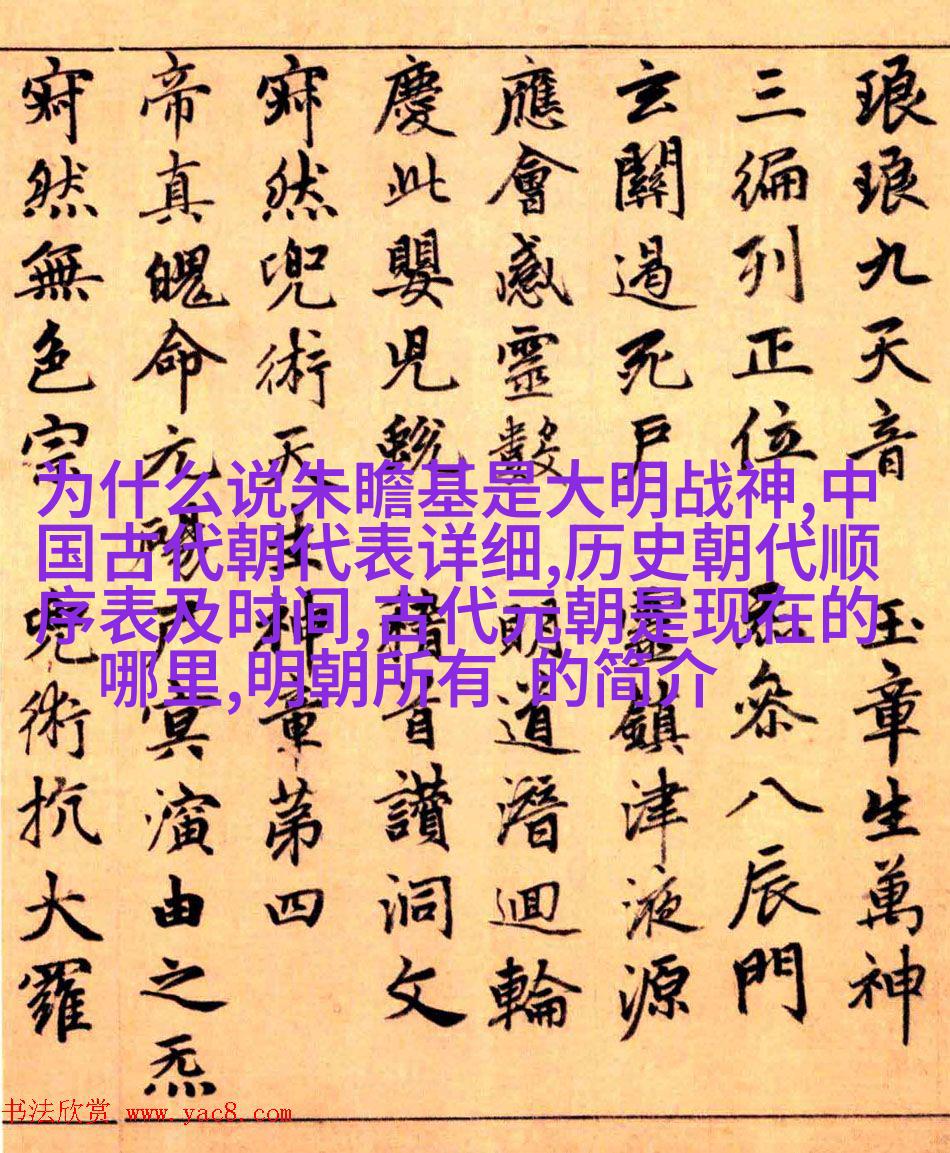 琅琅九天音 玉章生萬神
三編列正位 叅八辰門
玄關過死戶 靈鎮津液源
應會感靈數 明道潛迴輪
慶此嬰兒蛻 稽首讃洞文
寂然兜術天 神章第四
帝真魄命元 冥演由之炁
寂然無色宗 兜術抗大羅
为什么说朱瞻基是大明战神,中
国古代朝代表详细,历史朝代顺
序表及时间,古代元朝是现在的
哪里,明朝所有 的简介
书法欣赏 www.yac8.com